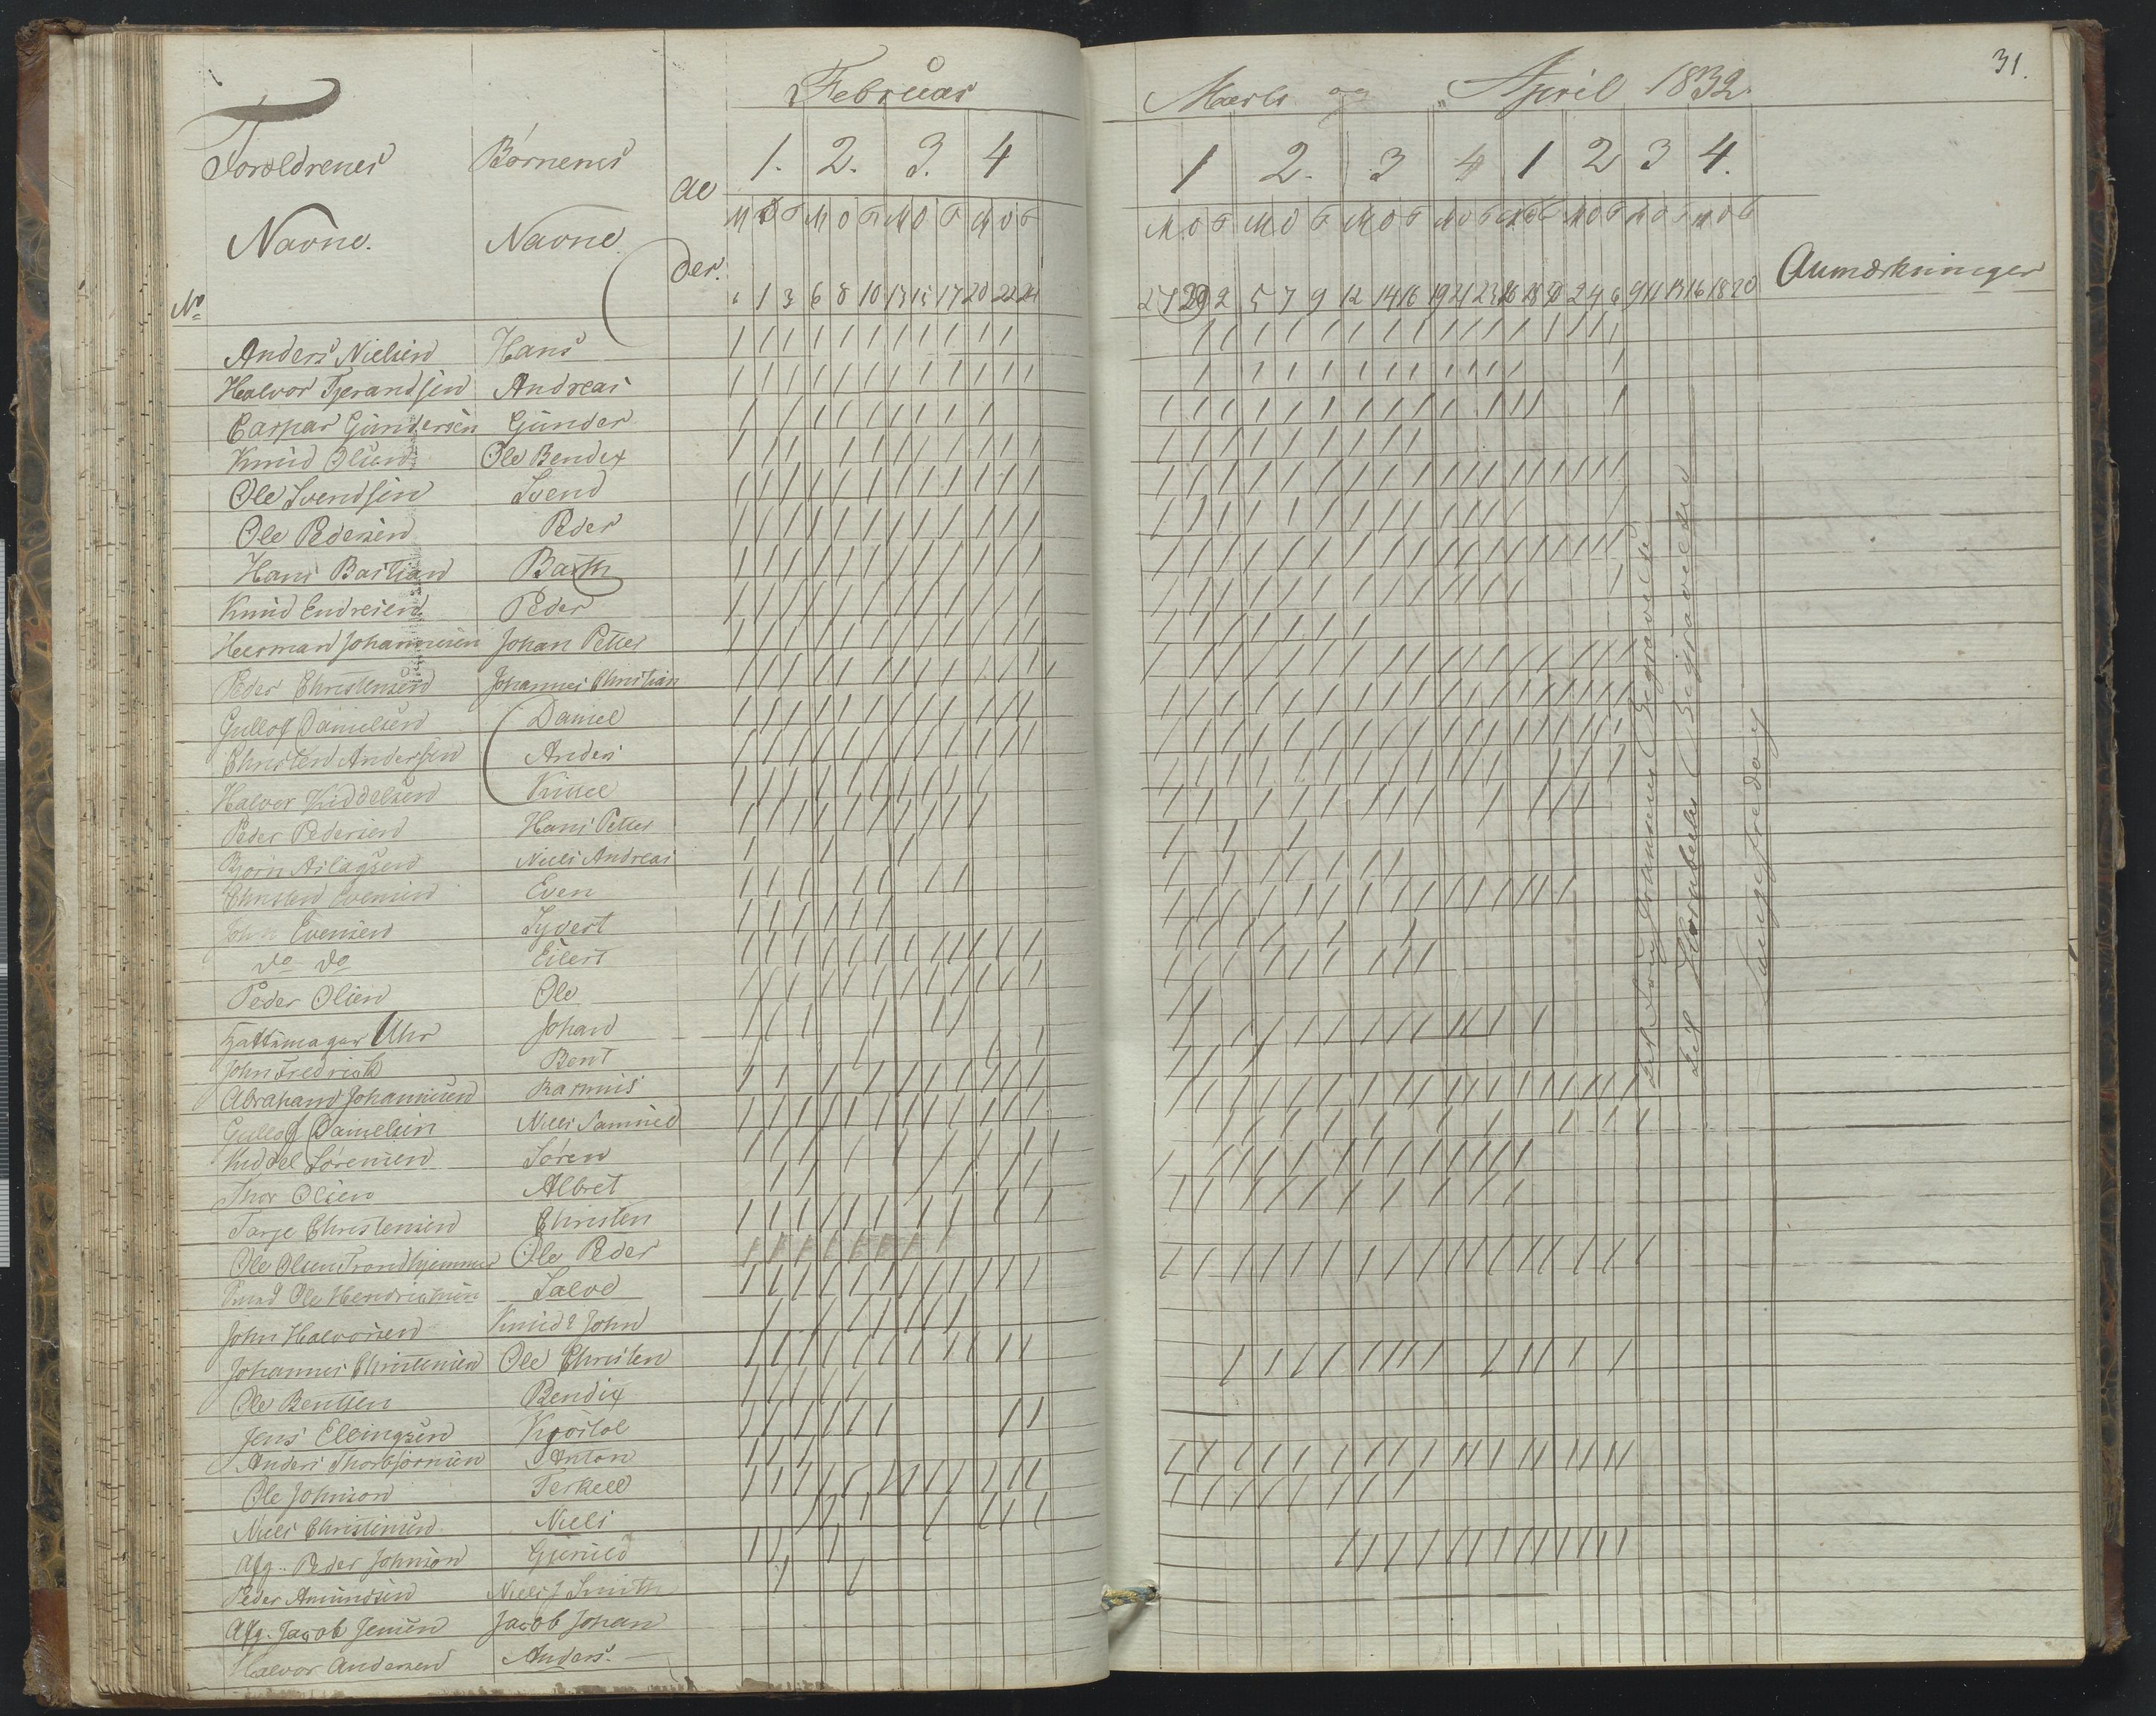 Februar
Marts og April 1832.
31.
Forældrenes Børnenes
Al
der.
Navne. Navne
No
1. 2. 3. 4
1 2. 3 4 1 2 3 4.
M O F M O F M O F M O F
M O F M O F M O F M O F M O F M O F M O F M O F
1 3 6 8 10 13 15 17 20 22 24
27 29 2 5 7 9 12 14 16 19 21 23 26 28 30 2 4 6 9 11 13 16 18 20
Anmærkninger
Anders Nielsen Hans
Halvor Tjerandsen Andreas
Caspar Gundersen Gunder
Knud Olsen Ole Bendix
Ole Svendsen Svend
Ole Pedersen Peder
Hans Bastian Barth
Knud Endresen Peder
Heerman Johannesen Johan Petter
Peder Christensen Johannes Christian
Gullof Danielsen Daniel
Christen Andersen Anders
Halvor Kiddelsen Kittel
Peder Pedersen Hans Petter
Bjørn Aslagsen Niels Andreas
Christen Evensen Even
John Evensen Syvert
do do Eilert
Peder Olsen Ole
Hattemager Uhr Johan
John Fredrick Bent
Abraham Johannesen Rasmus
Gullof Danielsen Niels Samuel
Kiddel Sørensen Søren
Thor Olsen Albret
Tarje Christensen Christen
Ole Olsen Trondhjemmer Ole Peder
Ole Hendrichsen Salve
John Halvorsen Knud & John
Johannes Christensen Ole Christen
Ole Bentsen Bendix
Jens Ellingsen
Anders Thorbjørnsen Anton
Ole Johnson Terkell
Niels Christensen Niels
Afg. Peder Johnson
Peder Amundsen Niels J Smith
Afg. Jacob Jensen Jacob Johan
Halvor Andersen Anders.
Johannes Begravelse
Begravelse
Langefredag